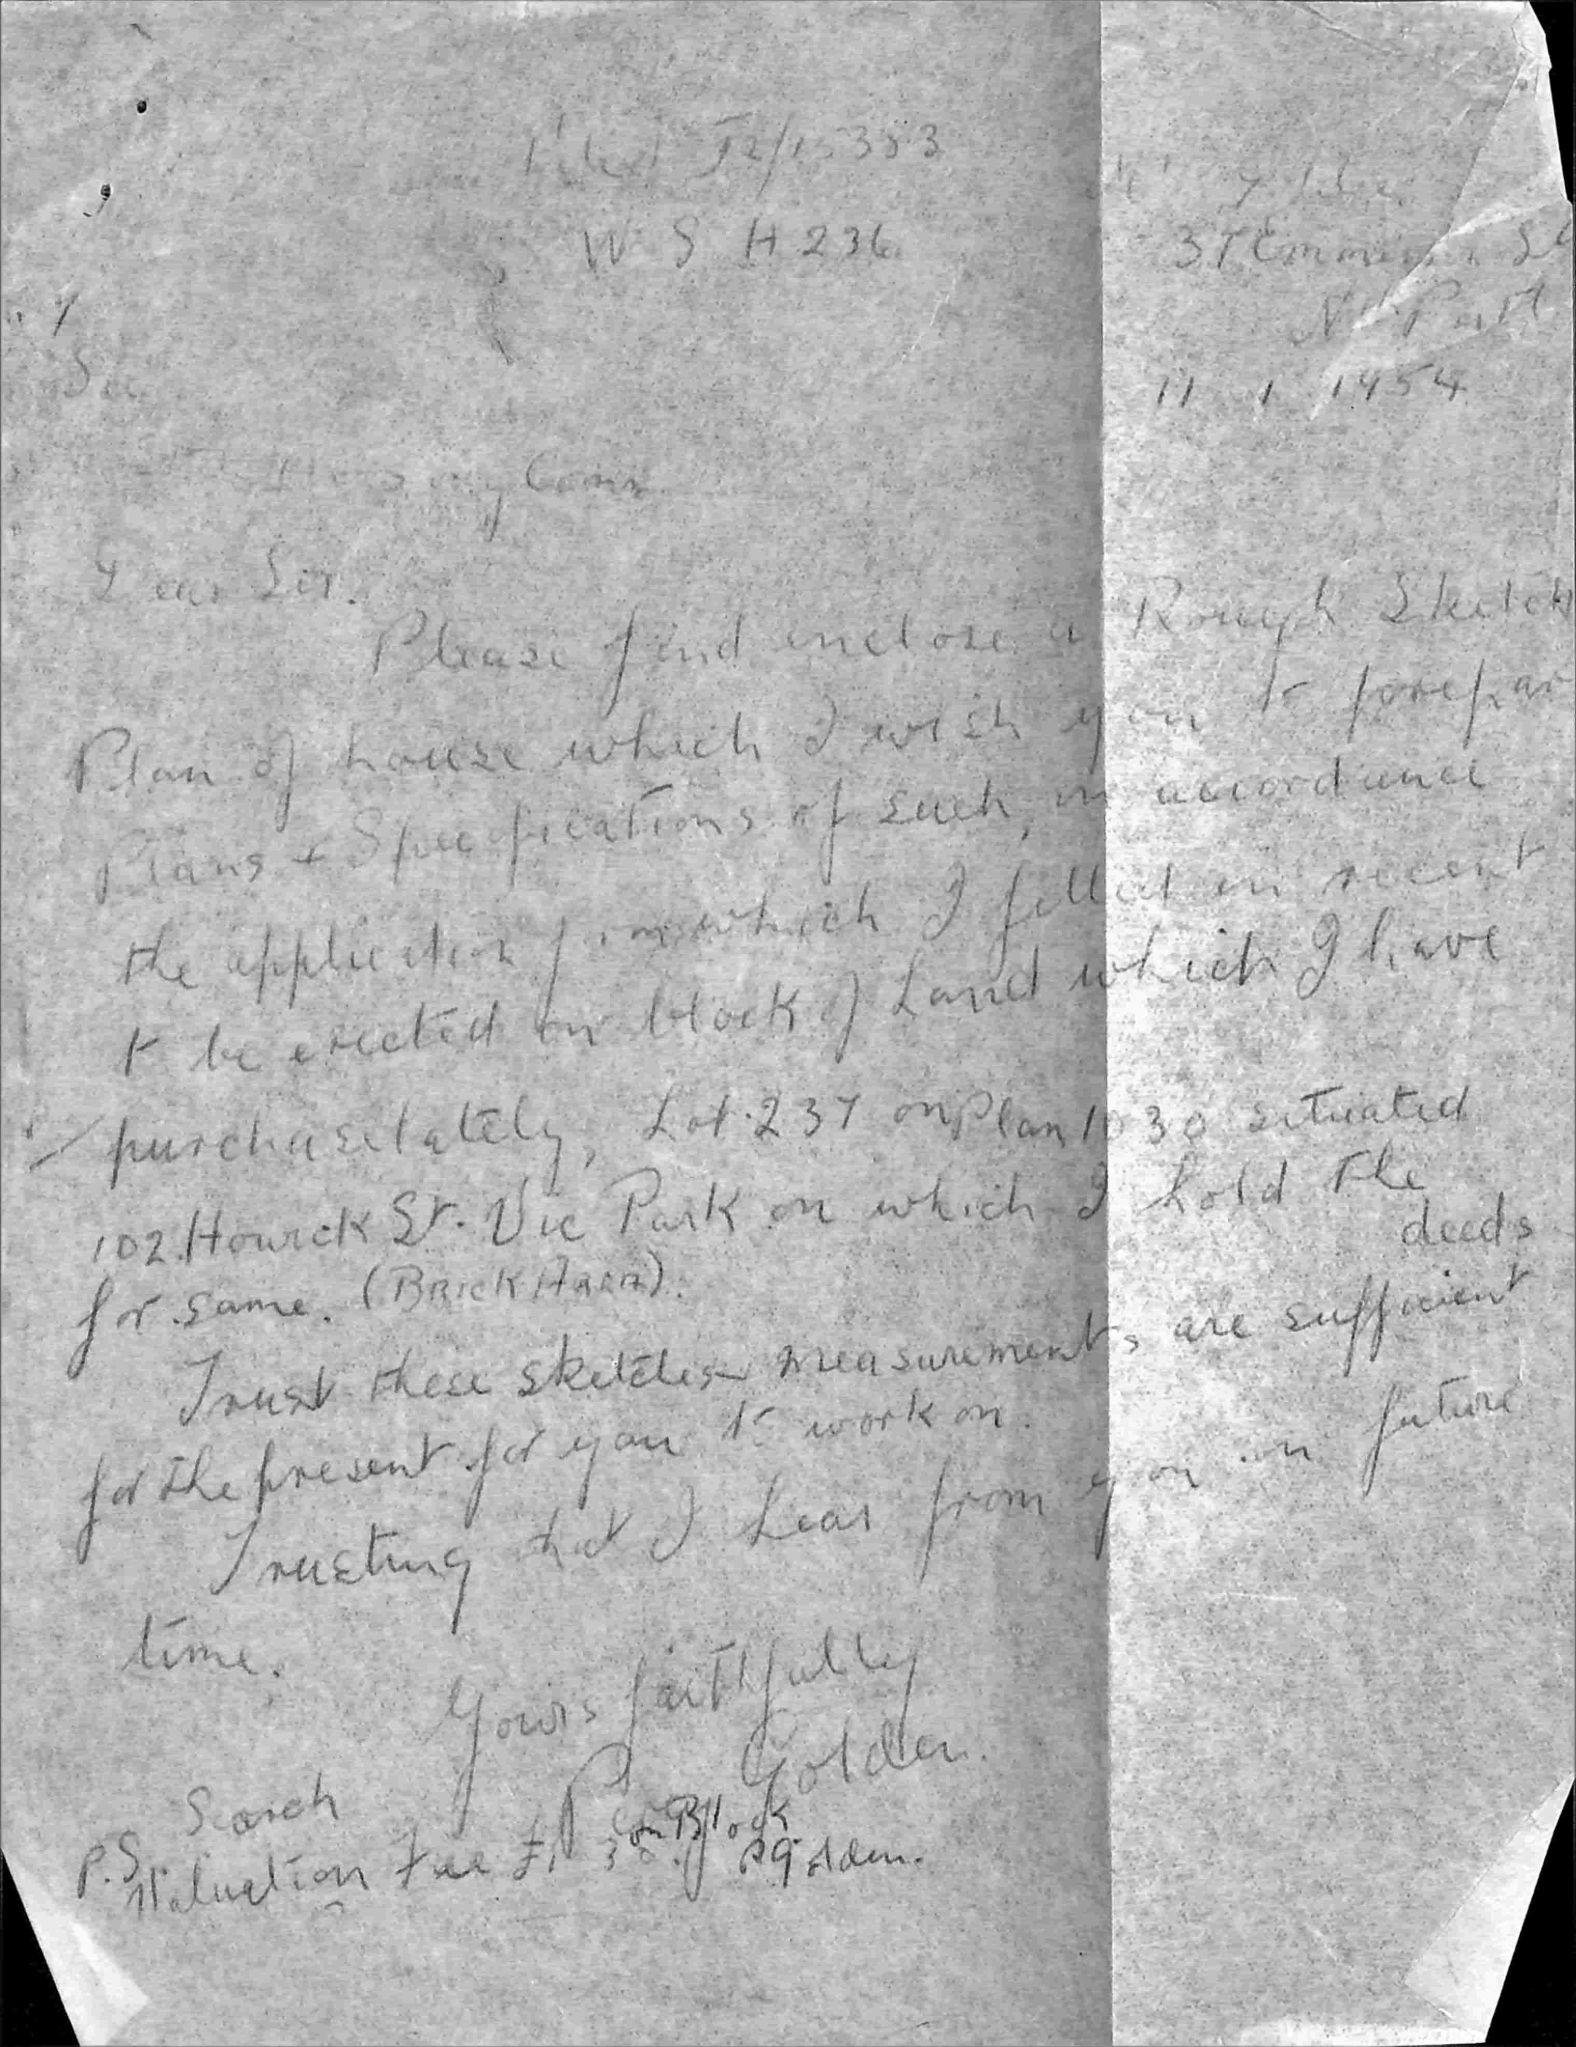 W S H 236
Nth Perth
11 1 1954
Sec
Housing Comm
Dear Sir.
Please find enclose a Rough Sketch
Plan of house which I wish you to prepar
Plans + Specifications of such, in accordance
the application form which I filled in recent
to be erected on block of Land which I have
purchase lately, Lot. 237 on Plan 1030 situated
102. Howick St. Vic Park on which I hold the
deeds
for same. (BRICK AREA).
Trust these sketches measurements are sufficient
for the present for you to work on.
Trusting that I hear from you in future
time.
Yours faithfully
Golden.
Search
on Block
P.S. Valuation Fee £1